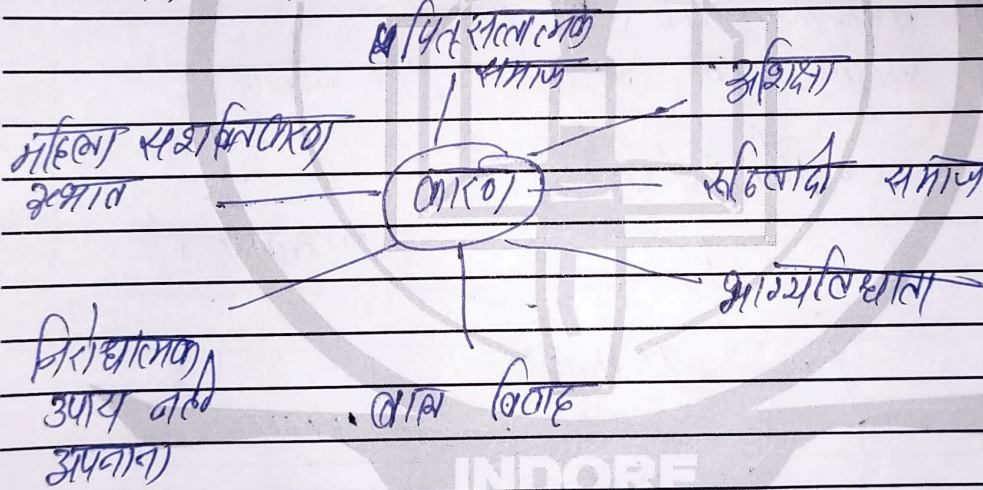 पितृसत्तात्मक
समाज
अशिक्षा
महिला सशक्तिकरण
अभाव
कारण
रूढिवादी समाज
भाग्यविधाता
निरोधात्मक
उपाय नही
अपनाना
. बाल विवाह
INDORE